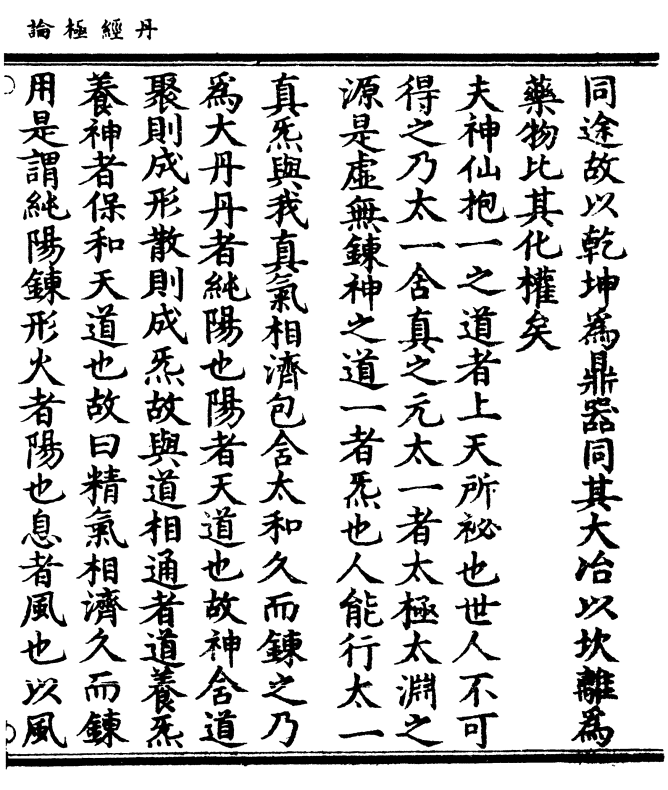 丹經極論
同途故以乾坤爲鼎器同其大冶以坎離爲
藥物比其化權矣
夫神仙抱一之道者上天所祕也世人不可
得之乃太一舍真之元太一者太極太淵之
源是虛無鍊神之道一者炁也人能行太一
真炁與我真氣相濟包舍太和久而鍊之乃
爲大丹丹者純陽也陽者天道也故神舍道
聚則成形散則成炁故與道相通者道養炁
養神者保和天道也故曰精氣相濟久而鍊
用是謂純陽鍊形火者陽也息者風也以風